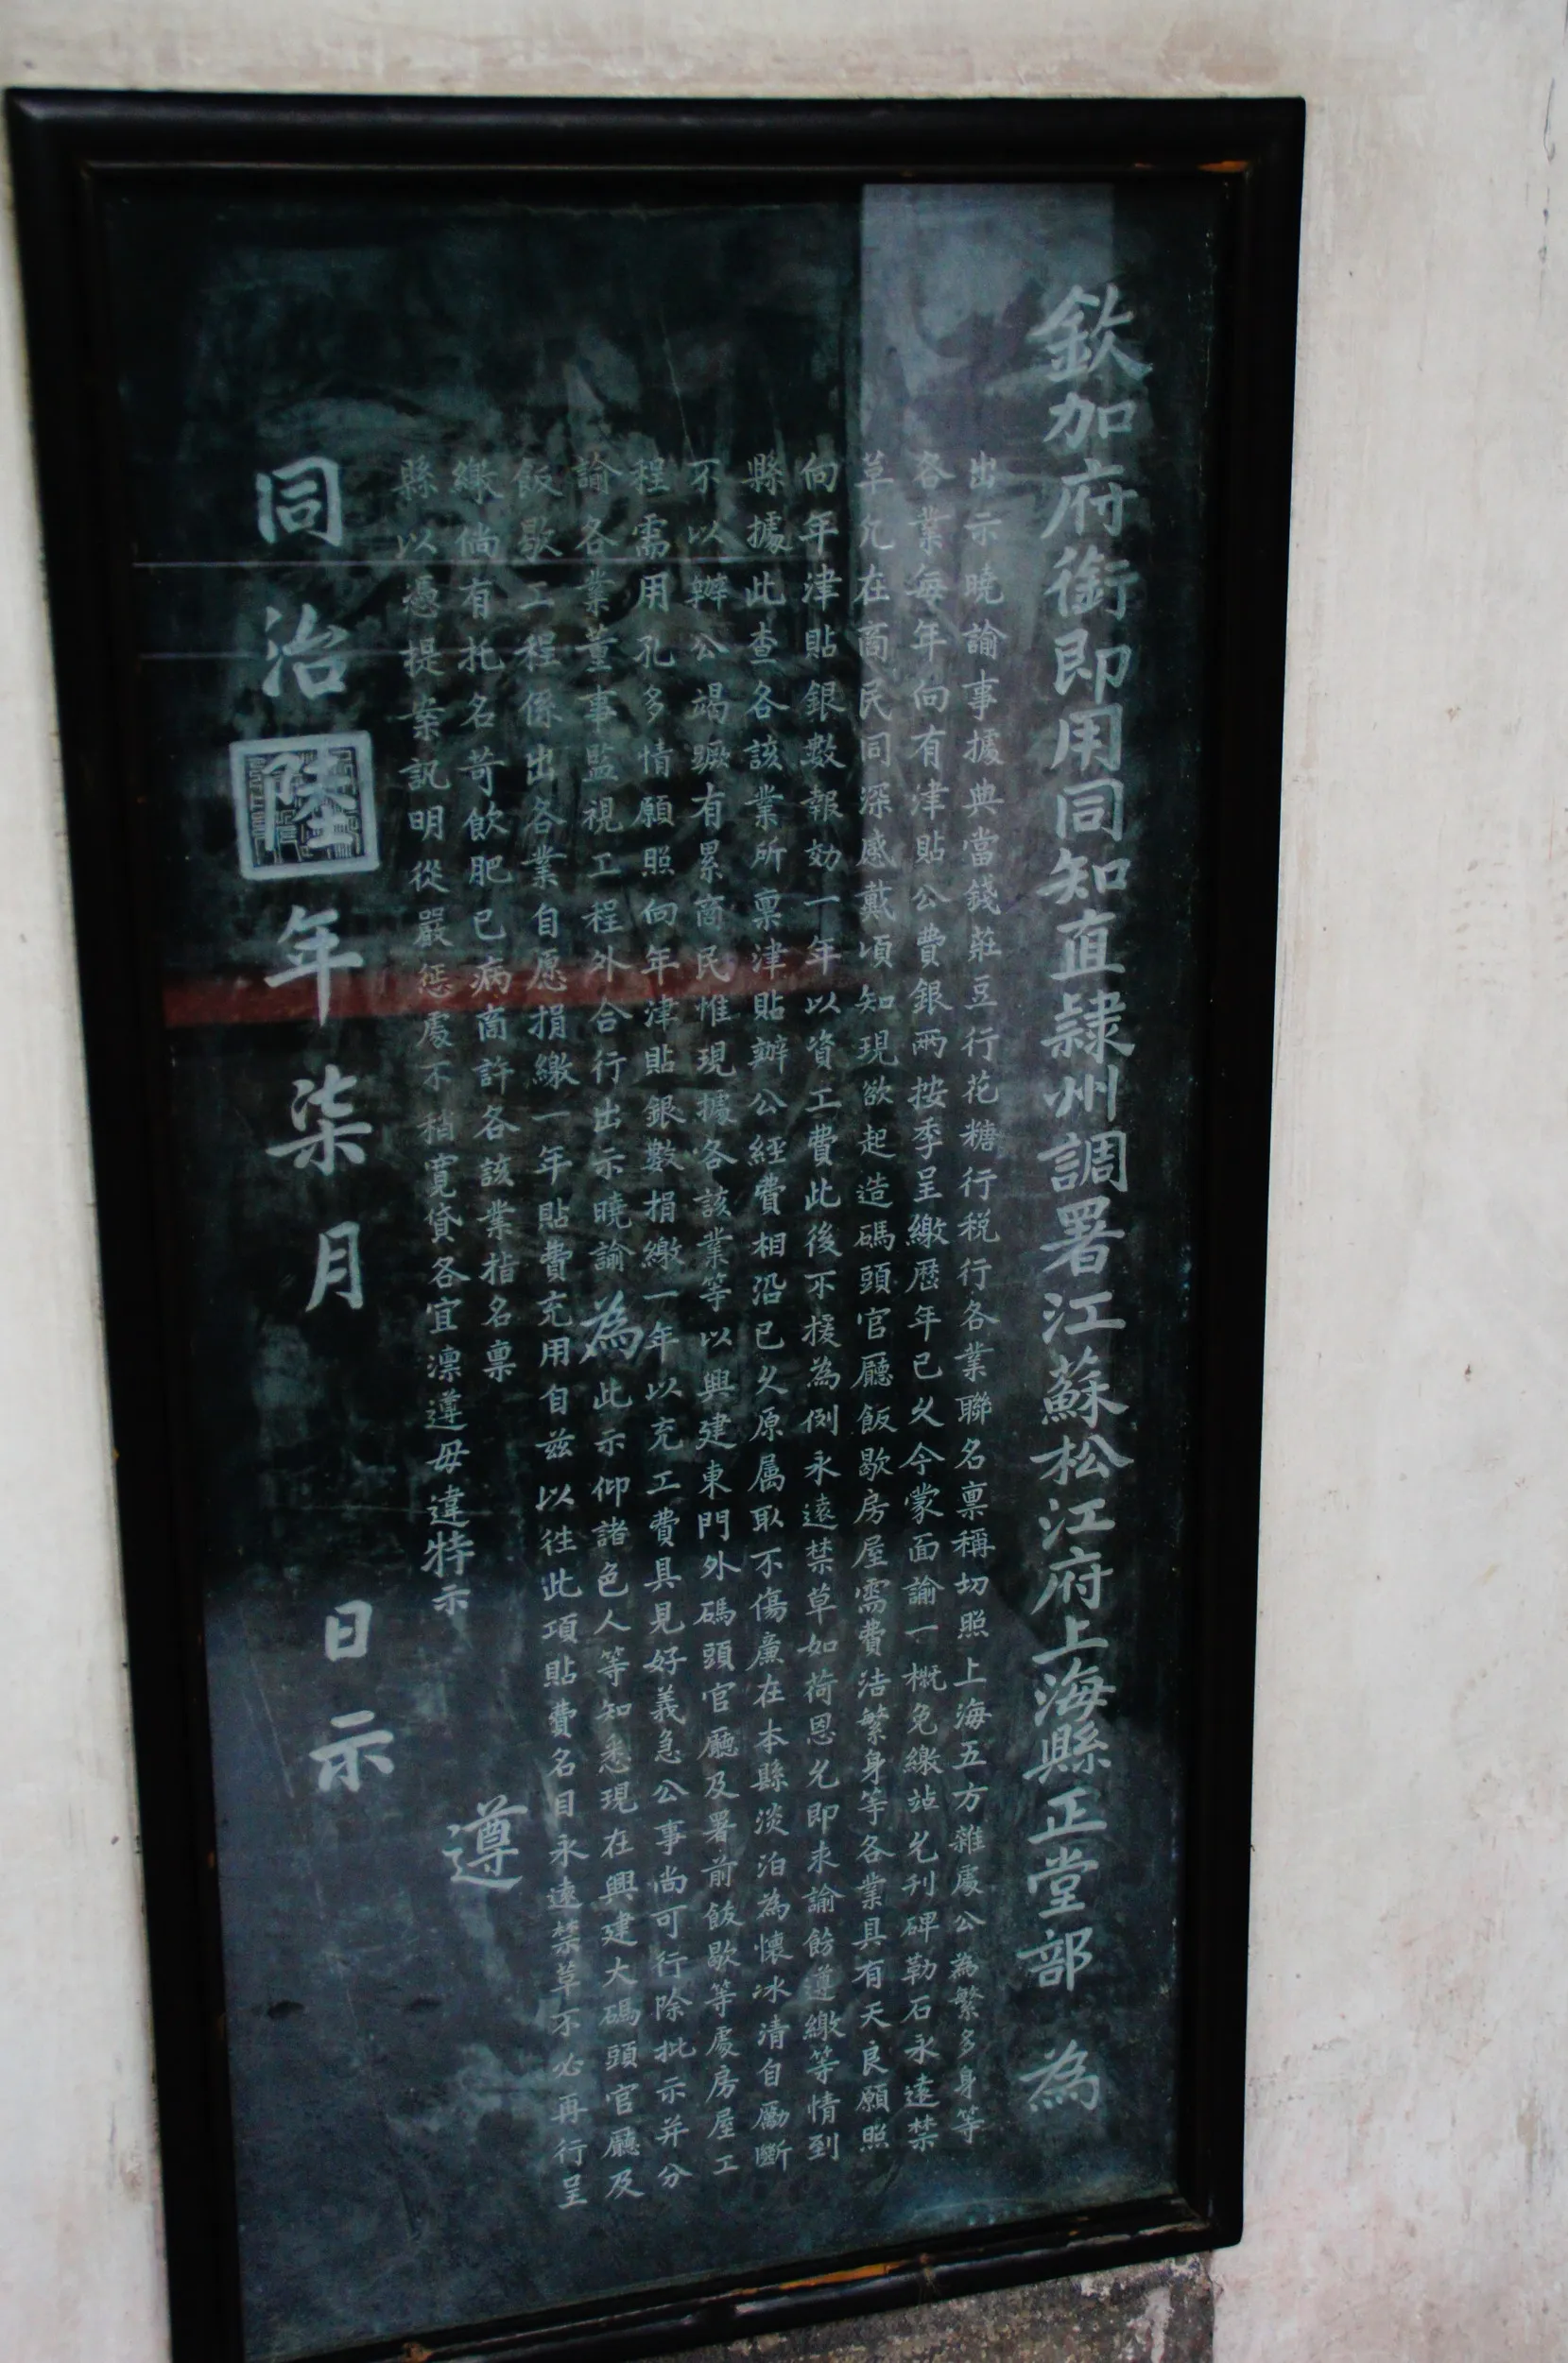 欽加府銜即用同知直隸州調署江蘇松江府上海縣正堂部 為
出示曉諭事據典當錢莊豆行花糖行税行各業聯名禀稱切照上海五方雜處公為繁多身等
各業每年向有津貼公費銀兩按季呈繳歷年已久今蒙面諭一概免繳站允刊碑勒石永遠禁
草允在商民同深感戴頃知現欲起造碼頭官廳飯歇房屋需費浩繁身等各業具有天良願照
向年津貼銀數報効一年以資工費此後不援為例永遠禁草如荷恩允即求諭飭遵繳等情到
縣據此查各該業所禀津貼辦公經費相沿已久原屬取不傷廉在本縣淡泊為懷冰清自勵斷
不以辦公竭蹶有累商民惟現據各該業等以興建東門外碼頭官廳及署前飯歇等處房屋工
程需用孔多情願照向年津貼銀數捐繳一年以充工費具見好義急公事尚可行除批示并分
諭各業董事監視工程外合行出示曉諭為此示仰諸色人等知悉現在興建大碼頭官廳及
飯歇工程係出各業自愿捐繳一年貼費充用自茲以往此項貼費名目永遠禁草不必再行呈
繳倘有托名苛飲肥己病商許各該業指名禀
縣以憑提案訊明從嚴惩處不稍寬貸各宜凛遵毋違特示
遵
同治陸年柒月 日示